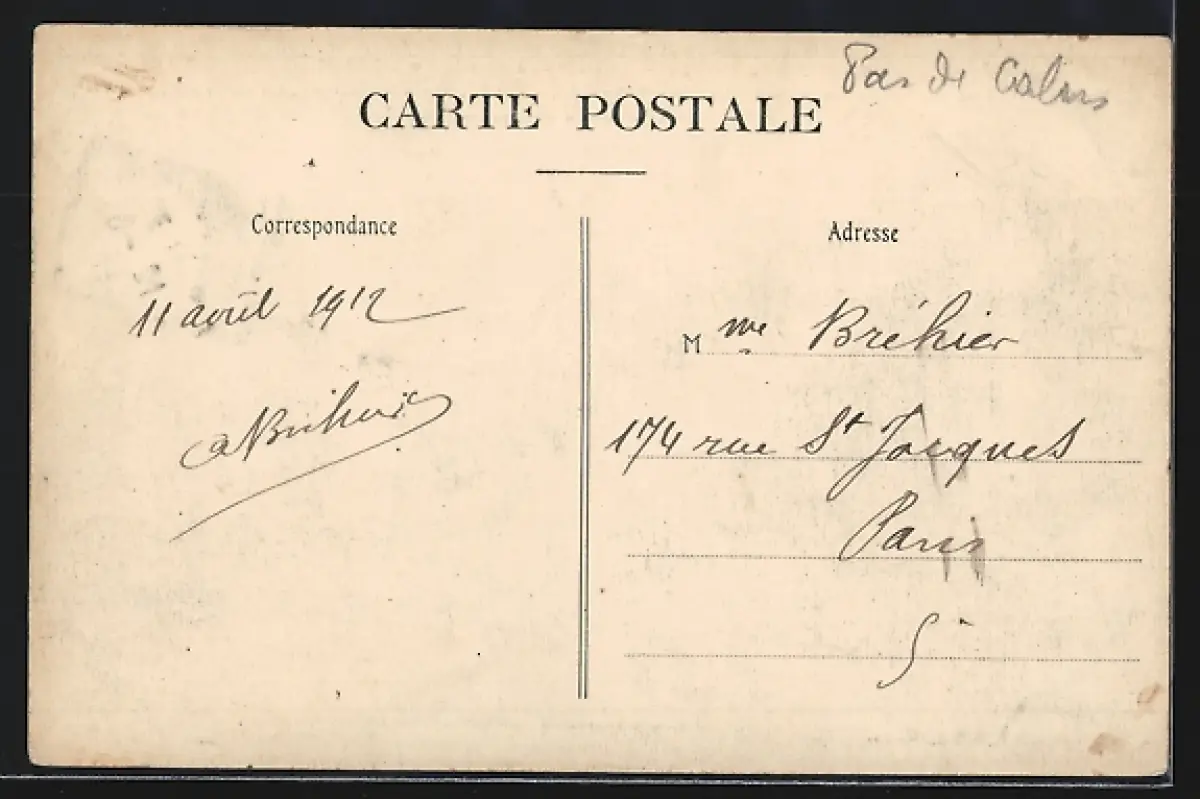 Pas de Calais
CARTE POSTALE
Correspondance
Adresse
11 avril 1912
ABréhier
Mme Bréhier
174 rue St Jacques
Paris
5